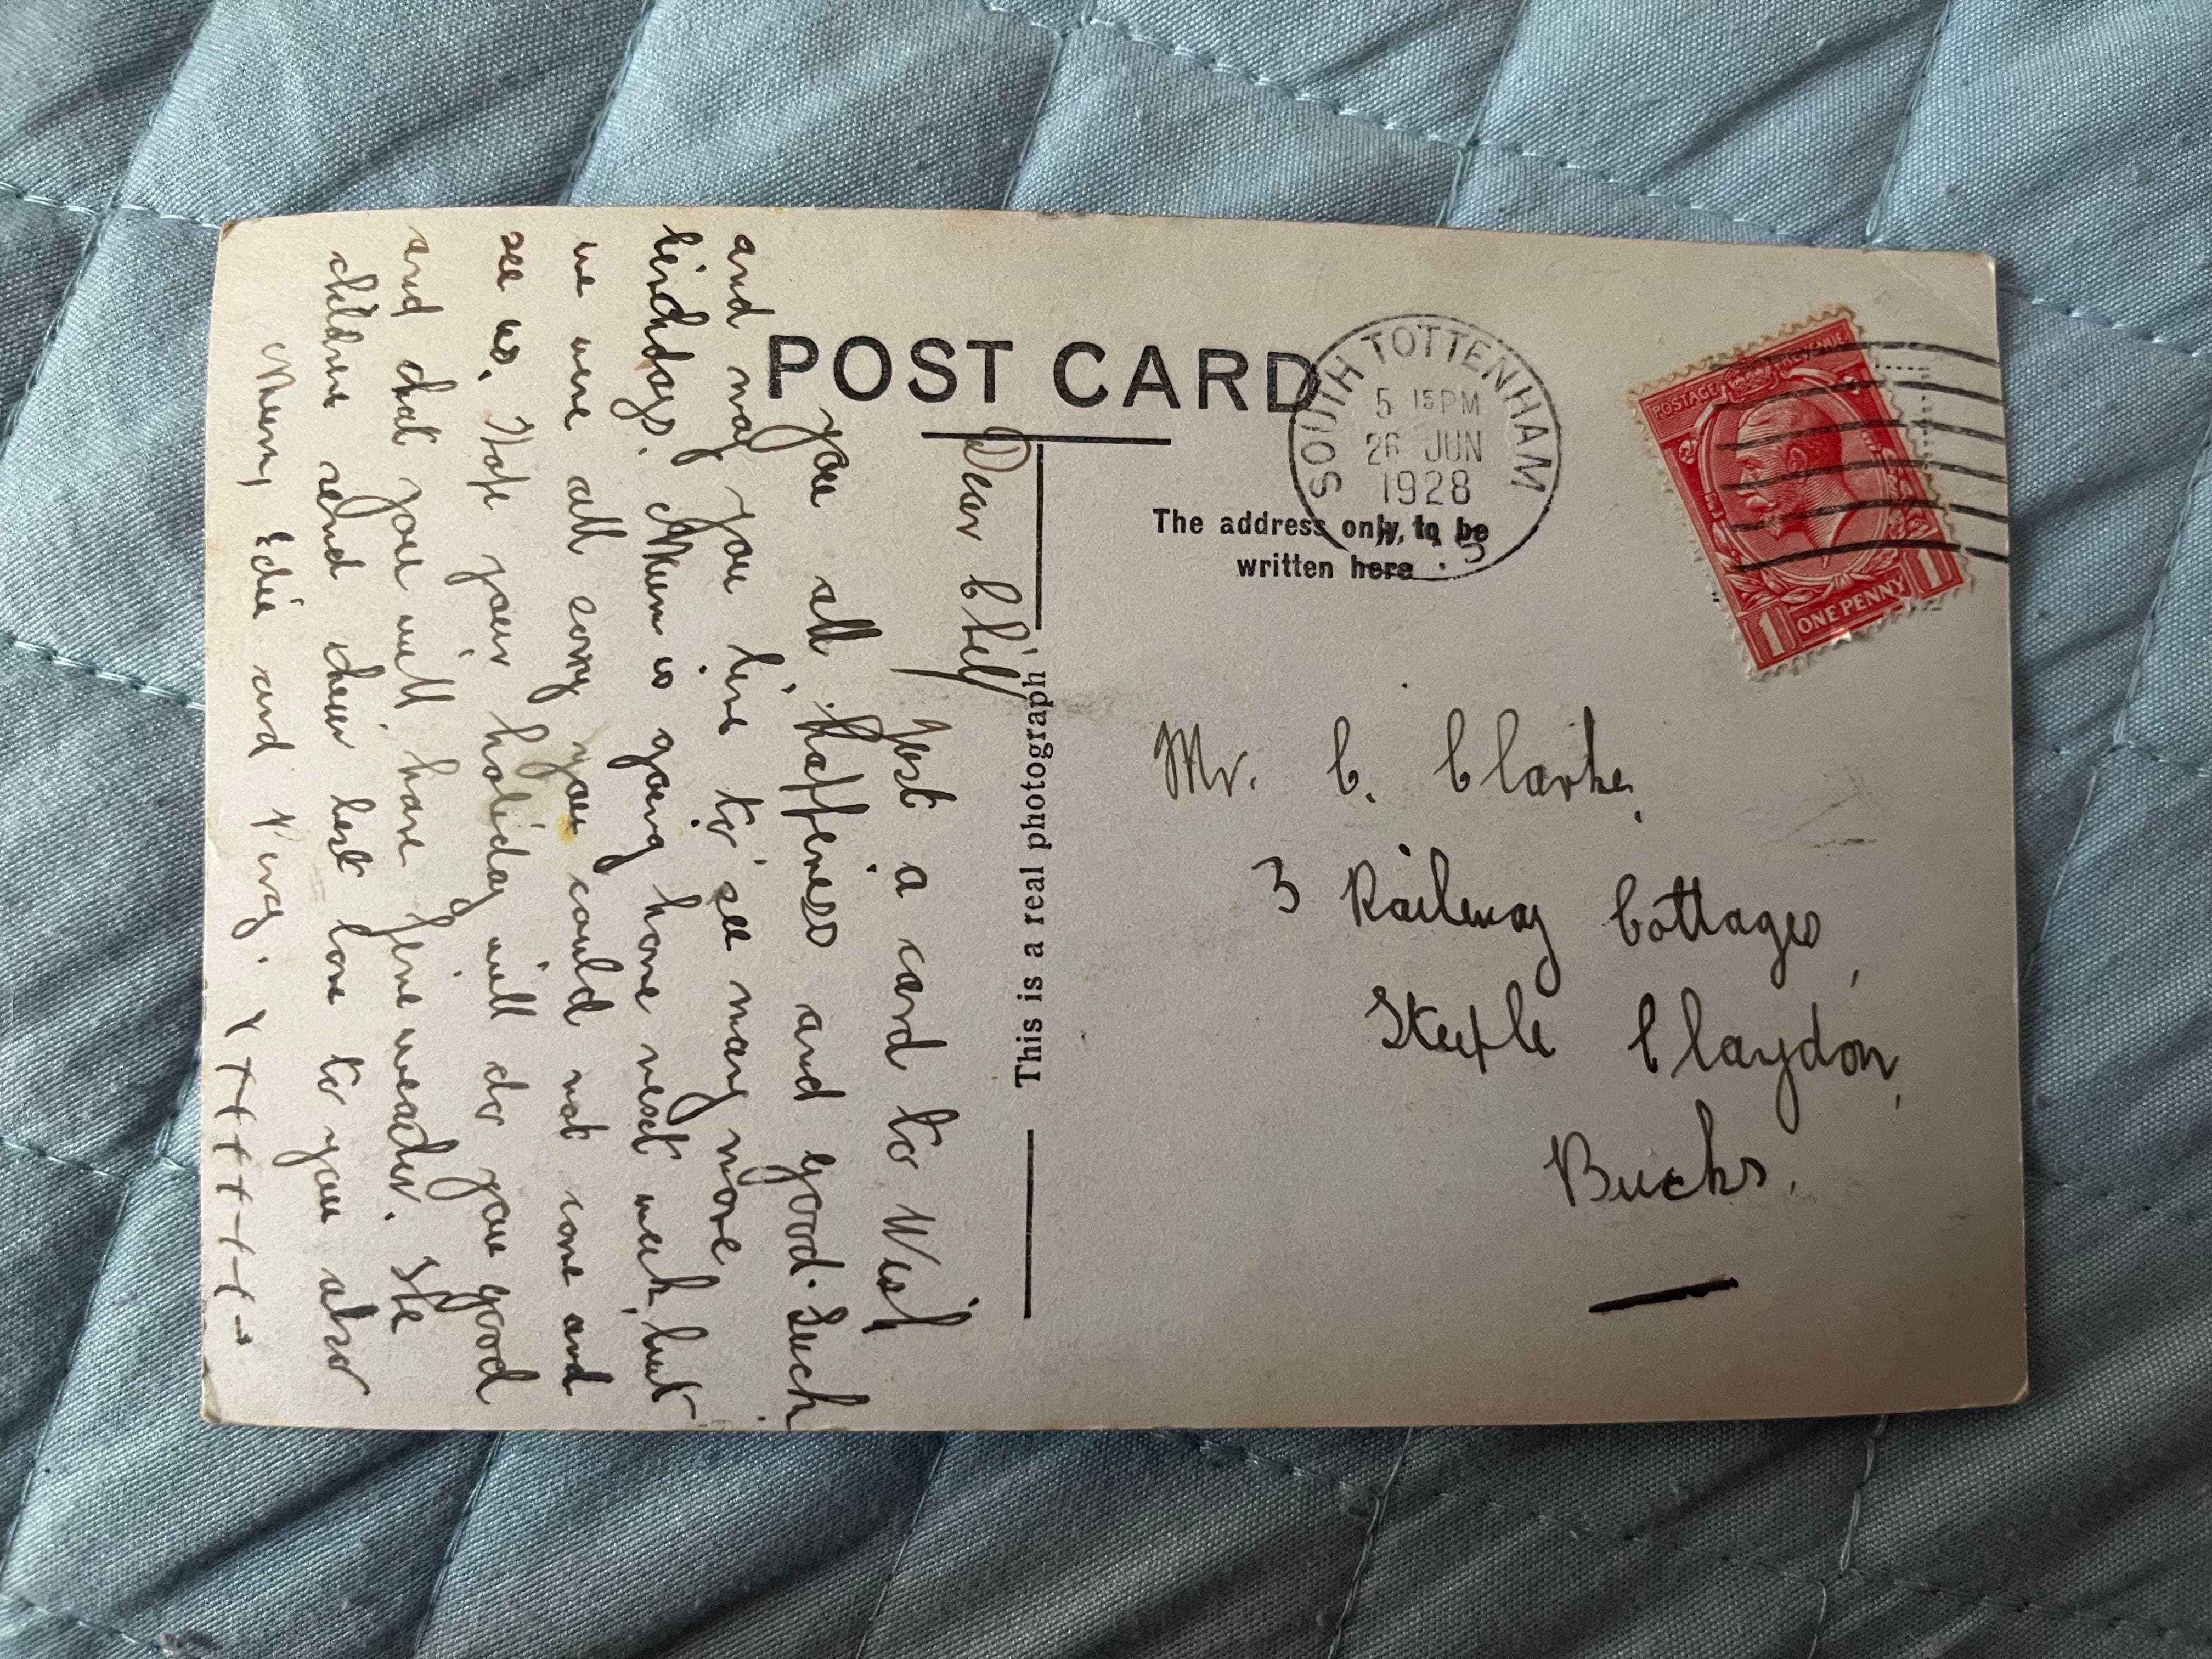 POST CARD
The address only, to be
written here
This is a real photograph
SOUTH TOTTENHAM
5 15 PM
26 JUN
1928
POSTAGE REVENUE
1 ONE PENNY 1
Mr. C. Clarke,
3 Railway Cottages,
Steeple Claydon,
Bucks.
Dear Chil,
Just a card to Wish
you all happiness and good. Such
and may you live to see many more
birthdays. Mum is going home next week, but
we were all sorry you could not come and
see us. Hope your holiday will do you good
and that you will have fine weather. The
children send their best love to you also
Mum, Edie and Perg. x x x x x x x x